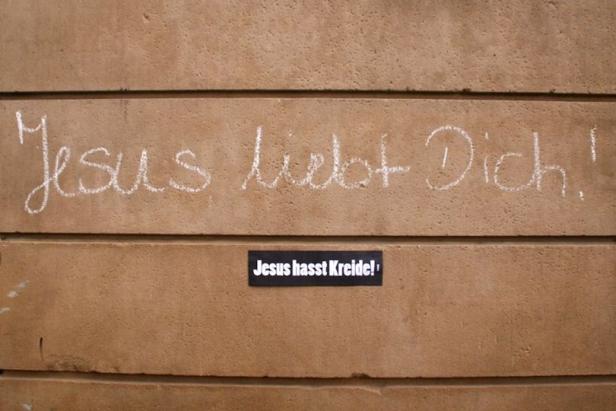 Jesus liebt Dich!
Jesus hasst Kreide!